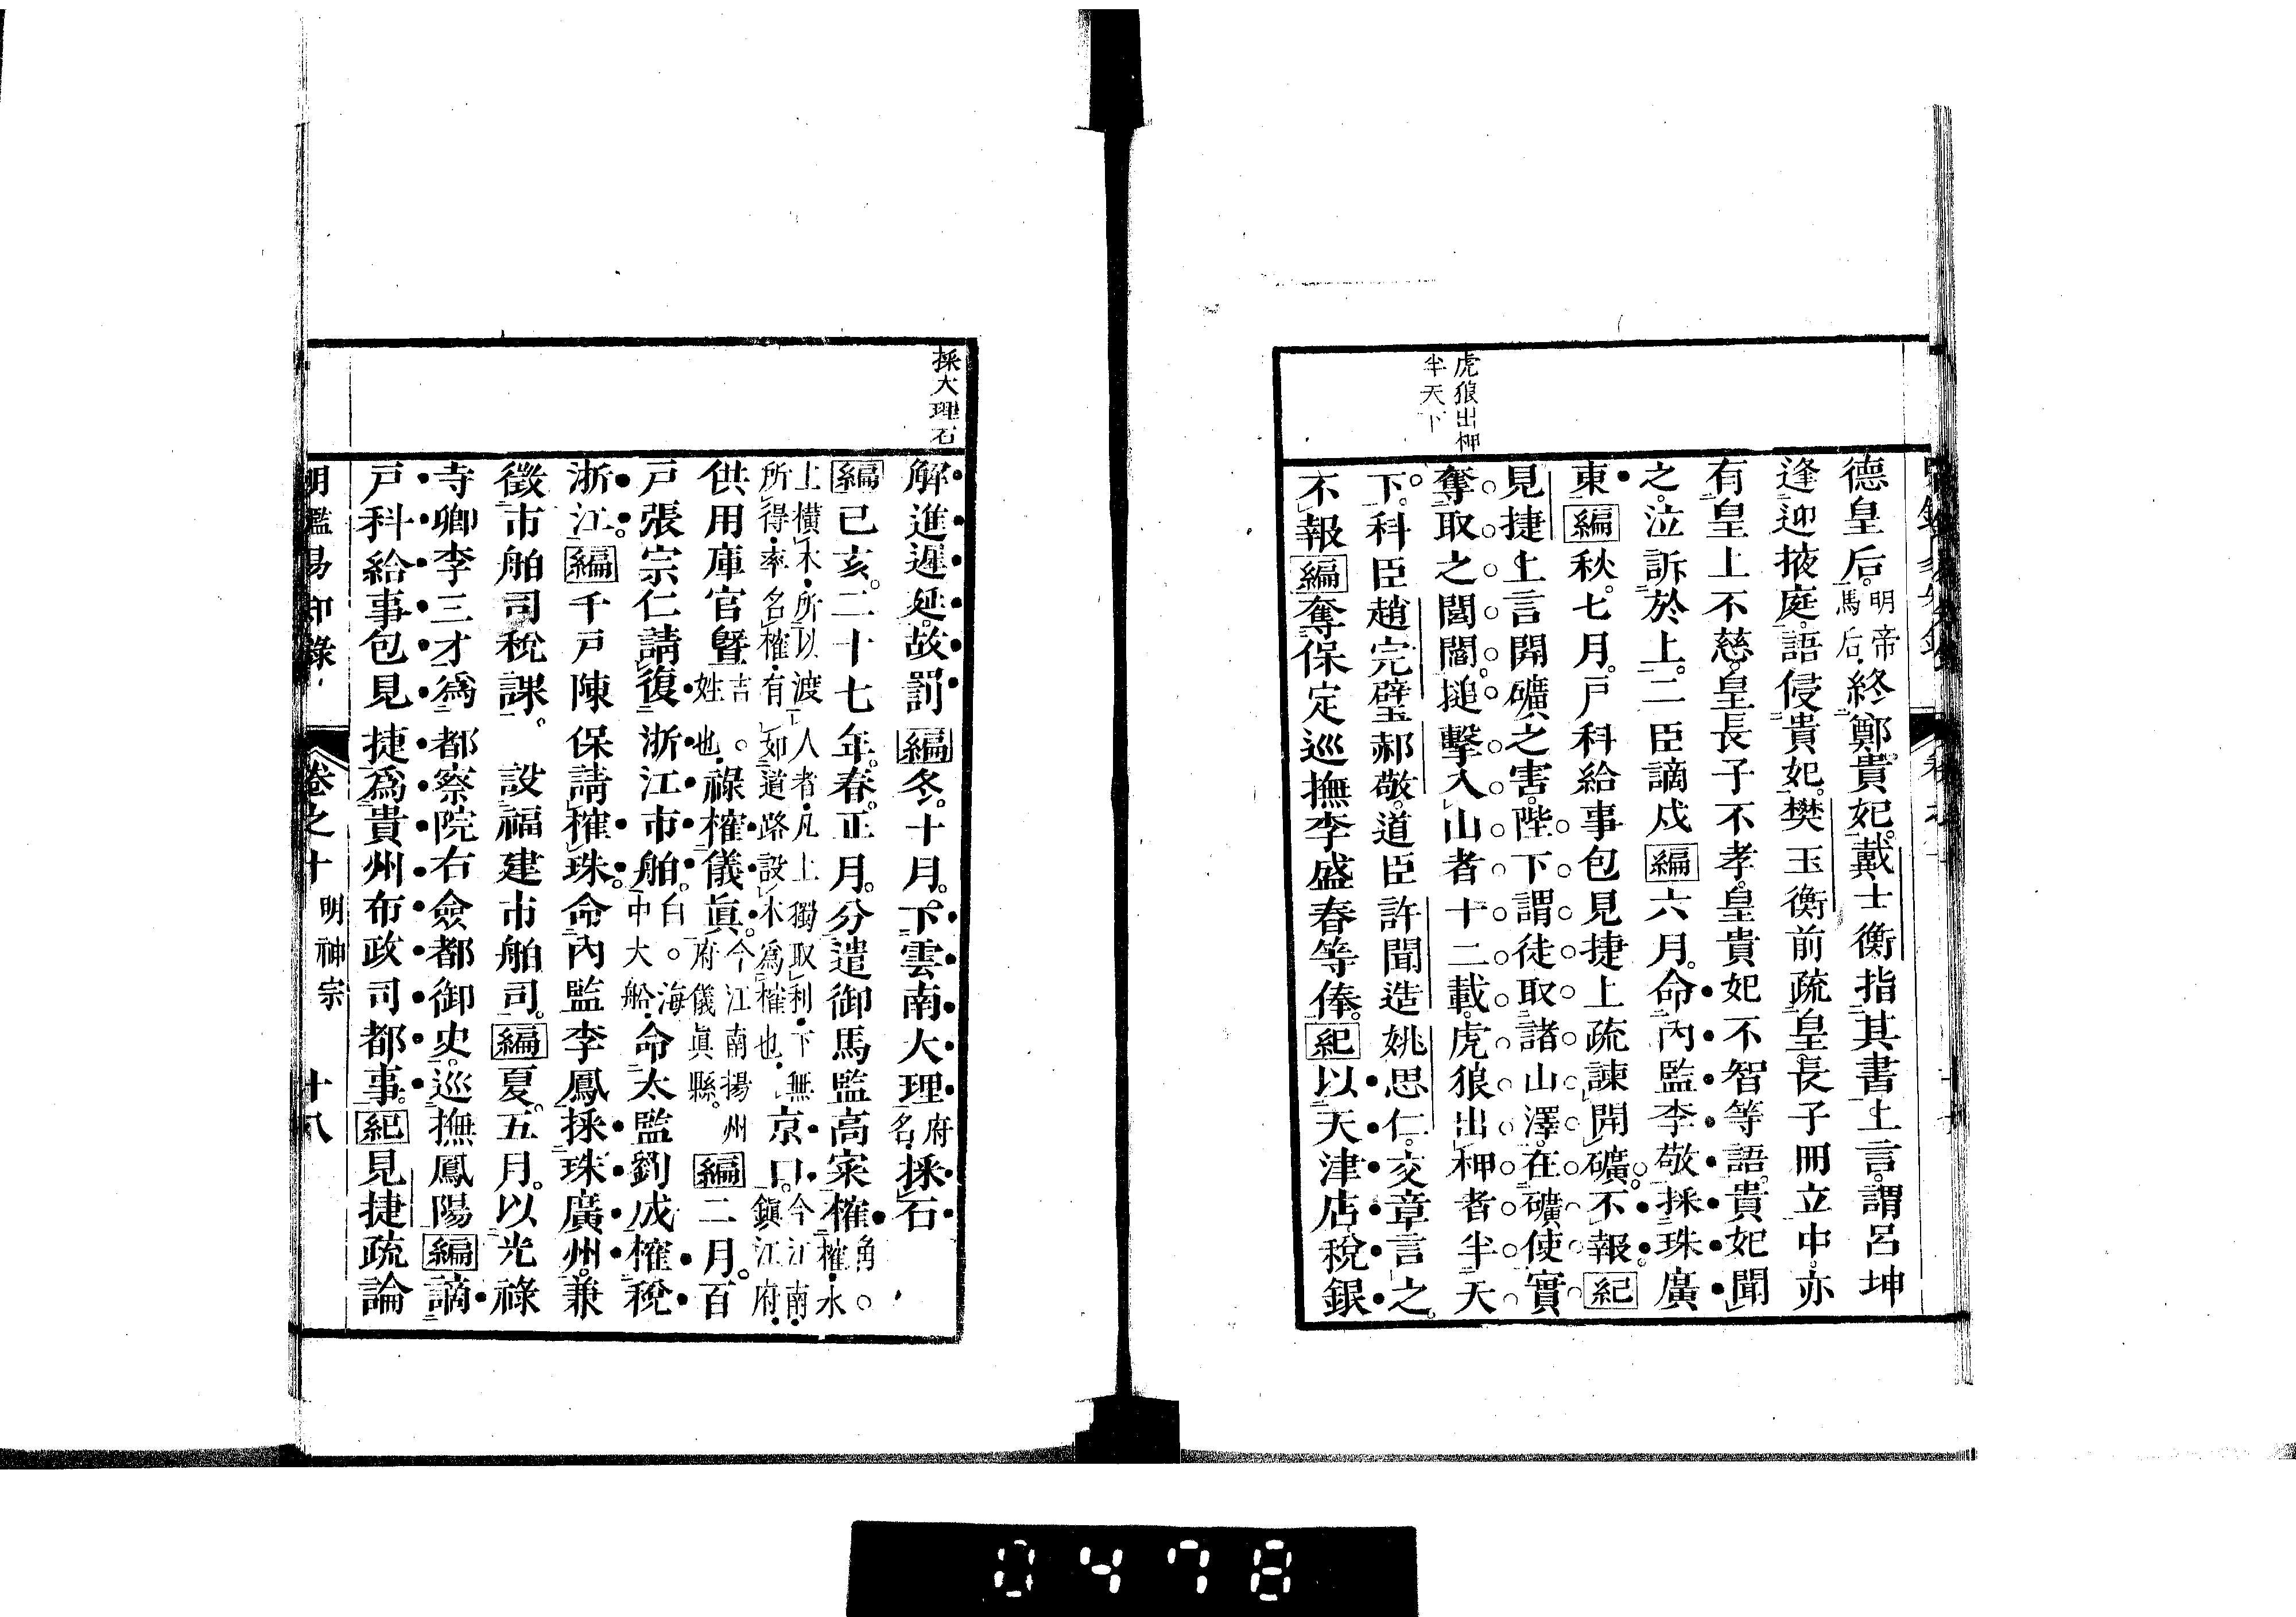 虎狼出柙
半天下
德皇后。明帝馬后。終鄭貴妃。戴士衡指其書上言。謂呂坤
逢迎掖庭。語侵貴妃。樊玉衡前疏。皇長子冊立中。亦
有皇上不慈。皇長子不孝。皇貴妃不智等語。貴妃聞
之。泣訴於上。二臣謫戍編六月。命內監李敬採珠廣
東編秋。七月。戶科給事包見捷上疏諫開礦。不報紀
見捷上言開礦之害。陛下謂徒取諸山澤。在礦使實
奪取之閭閻。搥擊入山者十二載。虎狼出柙者半天
下。科臣趙完璧郝敬。道臣許聞造姚思仁。交章言之。
不報編奪保定巡撫李盛春等俸。紀以天津店稅銀
採大理石
解進遲延。故罰編冬。十月。下雲南大理府名。採石
編己亥。二十七年。春。正月。分遣御馬監高寀榷榷角。榷水
上橫木所以渡人者凡上獨取利下無
所得率名榷有如道路設木為榷也京口。今江南鎮江府
供用庫官曁吉。姓也祿榷儀眞。今江南揚州府儀眞縣。編二月。百
戶張宗仁請復浙江市舶。白。海中大船。命太監劉成榷稅
浙江。編千戶陳保請榷珠。命內監李鳳採珠廣州。兼
徵市舶司稅課。設福建市舶司。編夏。五月。以光祿
寺卿李三才為都察院右僉都御史。巡撫鳳陽編謫
戶科給事包見捷為貴州布政司都事。紀見捷疏論
明鑑易知錄
卷之十
明神宗
十八
0478